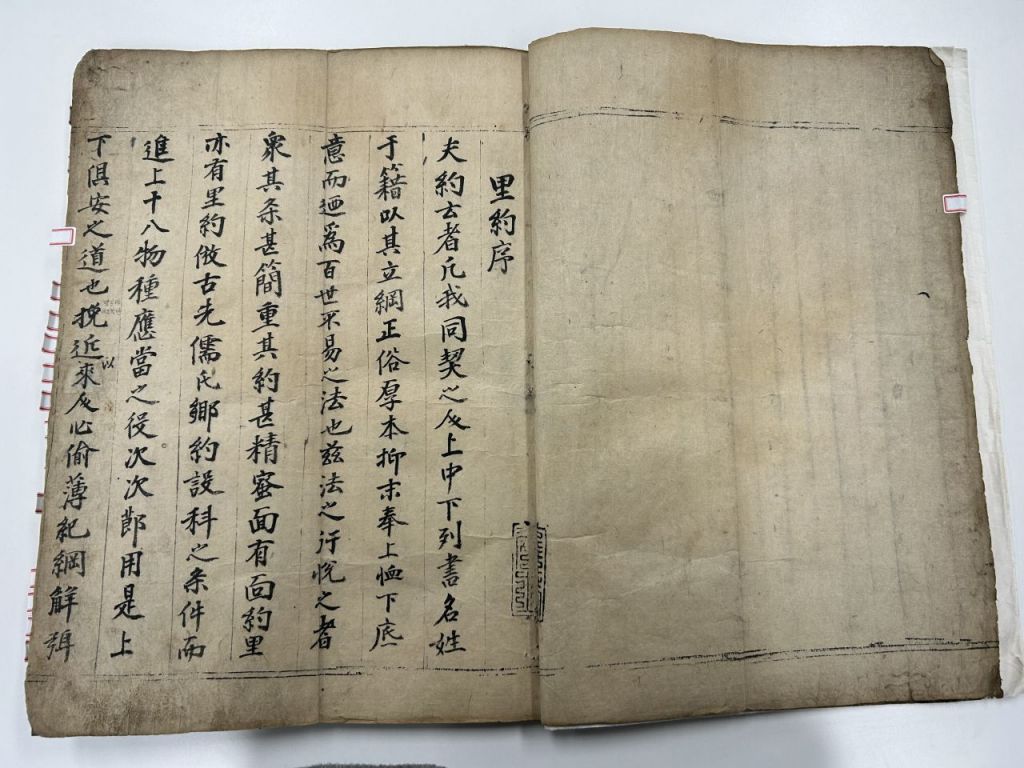 里約序
夫約玄者凡我同契之人上中下列書名姓
于籍以其立綱正俗厚本抑末奉上恤下底
意而迺爲百世不易之法也玆法之行悅之者
衆其条甚簡重其約甚精蜜面有面約里
亦有里約倣古先儒氏鄕約設科之条件而
進上十八物種應當之役次次節用是上
下俱安之道也挽近以來人心偷薄紀綱觧弛